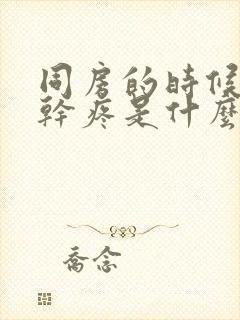 同房的時候
幹疼是什麼
喬念